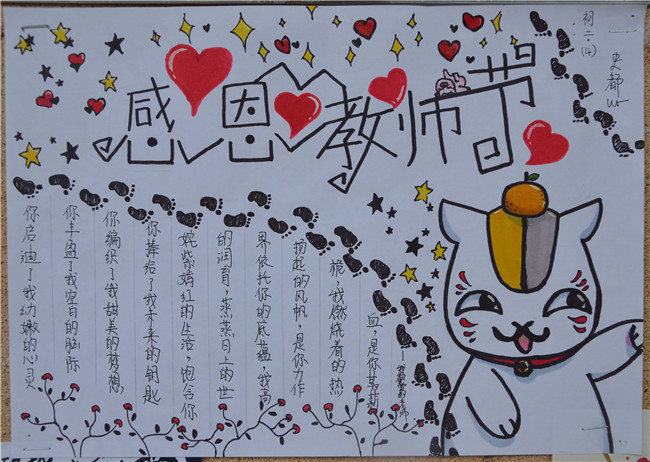 感恩教师节
初二.(4)
史都
你启迪了我幼嫩的心灵
你丰盈了我空白的脑际
你编织了我甜美的梦想,
你捧给了我未来的钥匙
姹紫嫣红的生活,饱含你
的润育,蒸蒸日上的世
界依托你的底蕴,我高
扬起的风帆,是你力作
桅,我燃烧着的热
血,是你